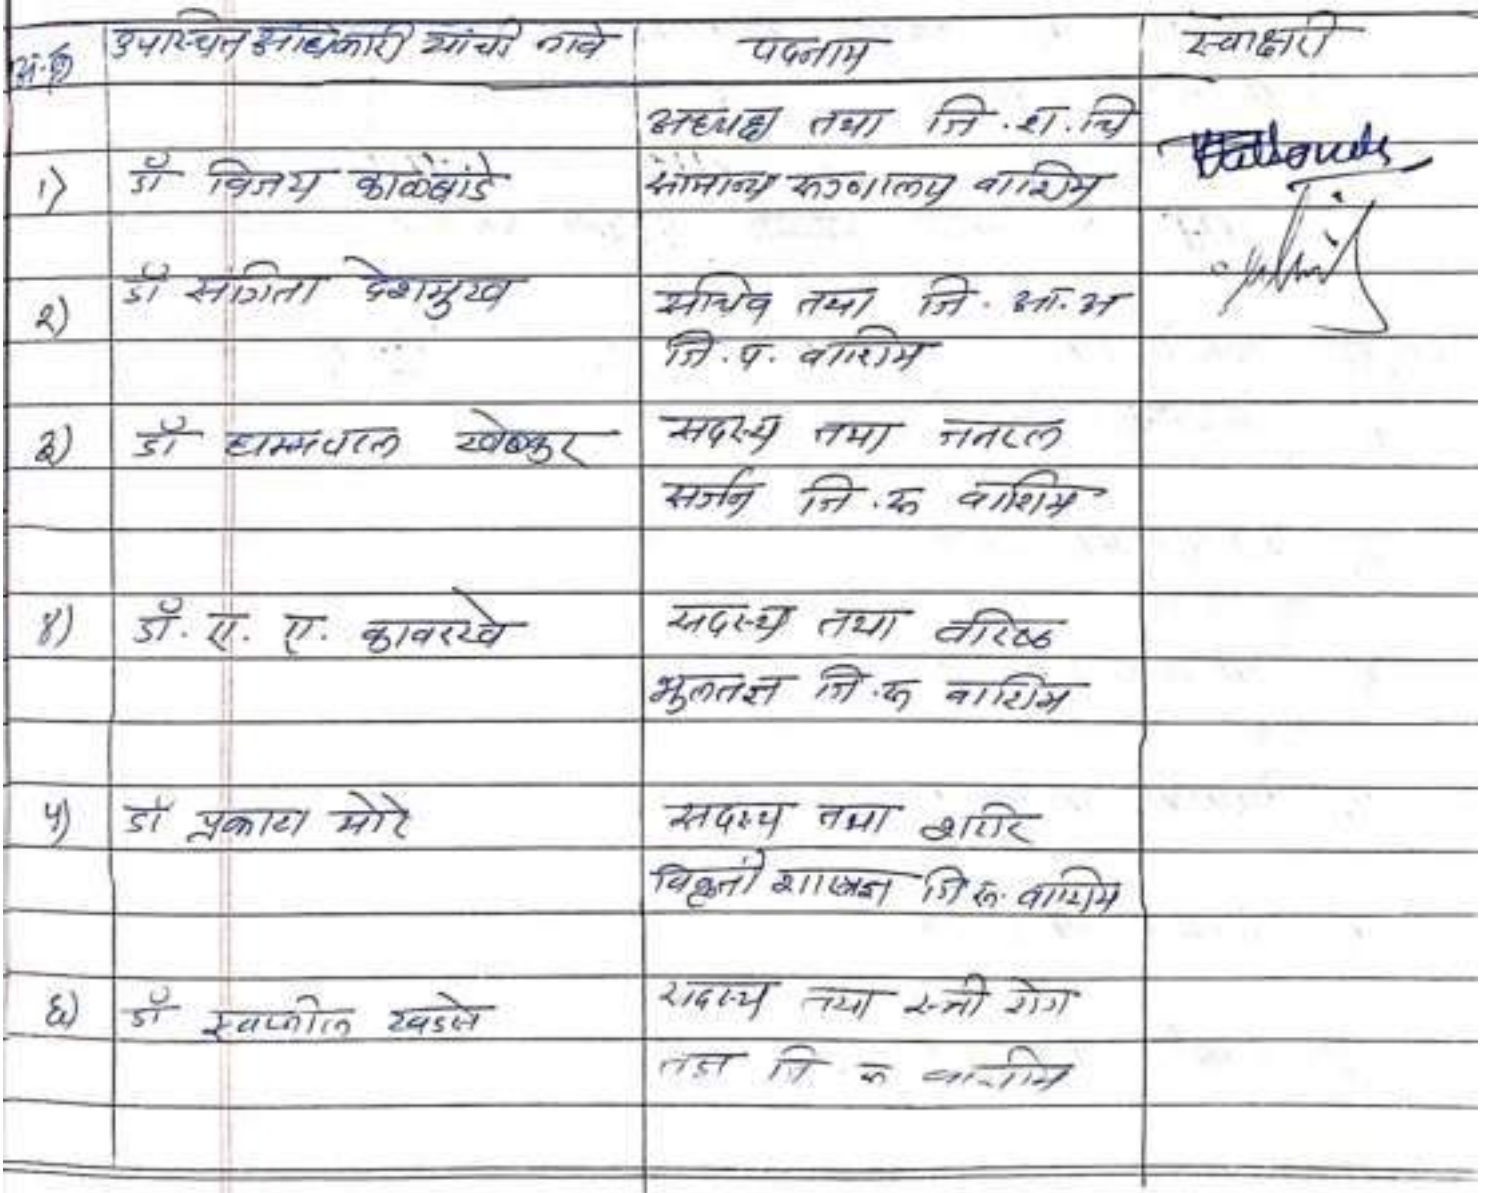 अ.क्र उपस्थित अधिकारी यांची नावे पदनाम स्वाक्षरी
अध्यक्ष तथा जि.श.चि
१) डॉ विजय काळबांडे सामान्य रुग्णालय वाशिम
डॉ संगिता देशमुख
२) सचिव तथा जि.आ.अ
जि.प. वाशिम
३) डॉ धम्मपाल खेळकर सदस्य तथा जनरल
सर्जन जि.रु वाशिम
४) डॉ. ए. ए. कावरखे सदस्य तथा वरिष्ठ
भुलतज्ञ जि.रु वाशिम
५) डॉ प्रकाश मोरे सदस्य तथा शरिर
विकृती शास्त्रज्ञ जि रु. वाशिम
६) डॉ स्वप्नील सदस्य तथा स्त्री रोग
तज्ञ जि रु वाशीम